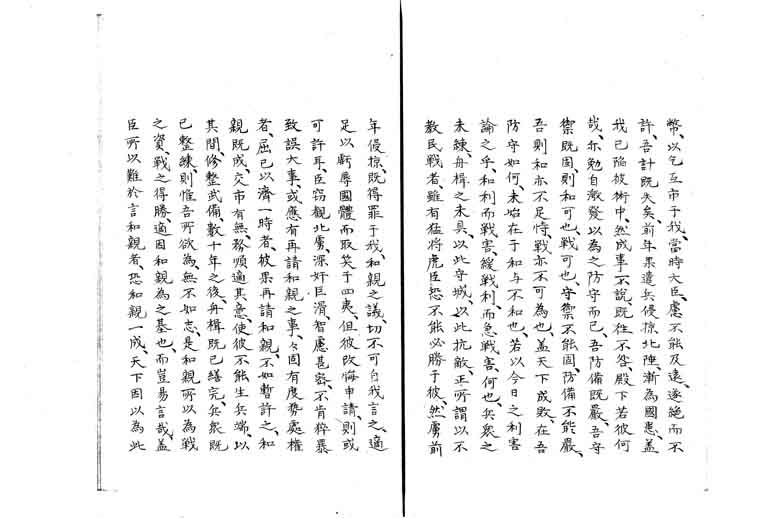 幣、以乞互市于我、當時大臣、慮不能及遠、遂絶而不
許、吾計既失矣、前年果遣兵侵掠北陲、漸為國患、盖
我已陥彼術中、然成事不説、既往不咎、殿下若彼何
哉、亦勉自激發以為之防守而已、吾防備既嚴、吾守
禦既固、則和可也、戦可也、守禦不能固、防備不能嚴、
吾則和亦不足恃、戦亦不可為也、盖天下成敗、在吾
防守如何、未始在于和与不和也、若以今日之利害
論之乎、和利而戦害、緩戦利而急戦害、何也、兵衆之
未錬、舟楫之未具、以此守城、以此抗敵、正所謂以不
教民戦者、雖有猛将虎臣、恐不能必勝于彼、然虜前
年侵掠、既得罪于我、和親之議、切不可自我言之、適
足以虧辱國體、而取笑于四夷、但彼改悔申請、則或
可許耳、臣窃観北虜、深奸巨滑、智慮甚密、不肯粹暴
致誤大事、或應有再請和親之事、々固有度勢處權
者、屈己以濟一時者、彼果再請和親、不如暫許之、和
親既成、交市有無、務順適其意、使彼不能生兵端、以
其間修整武備、數十年之後、舟楫既已繕完、兵衆既
已整練、則惟吾所欲為、無不如志、是和親所以為戦
之資、戦之得勝、適因和親為之基也、而豈易言哉、盖
臣所以難於言和親者、恐和親一成、天下因以為此